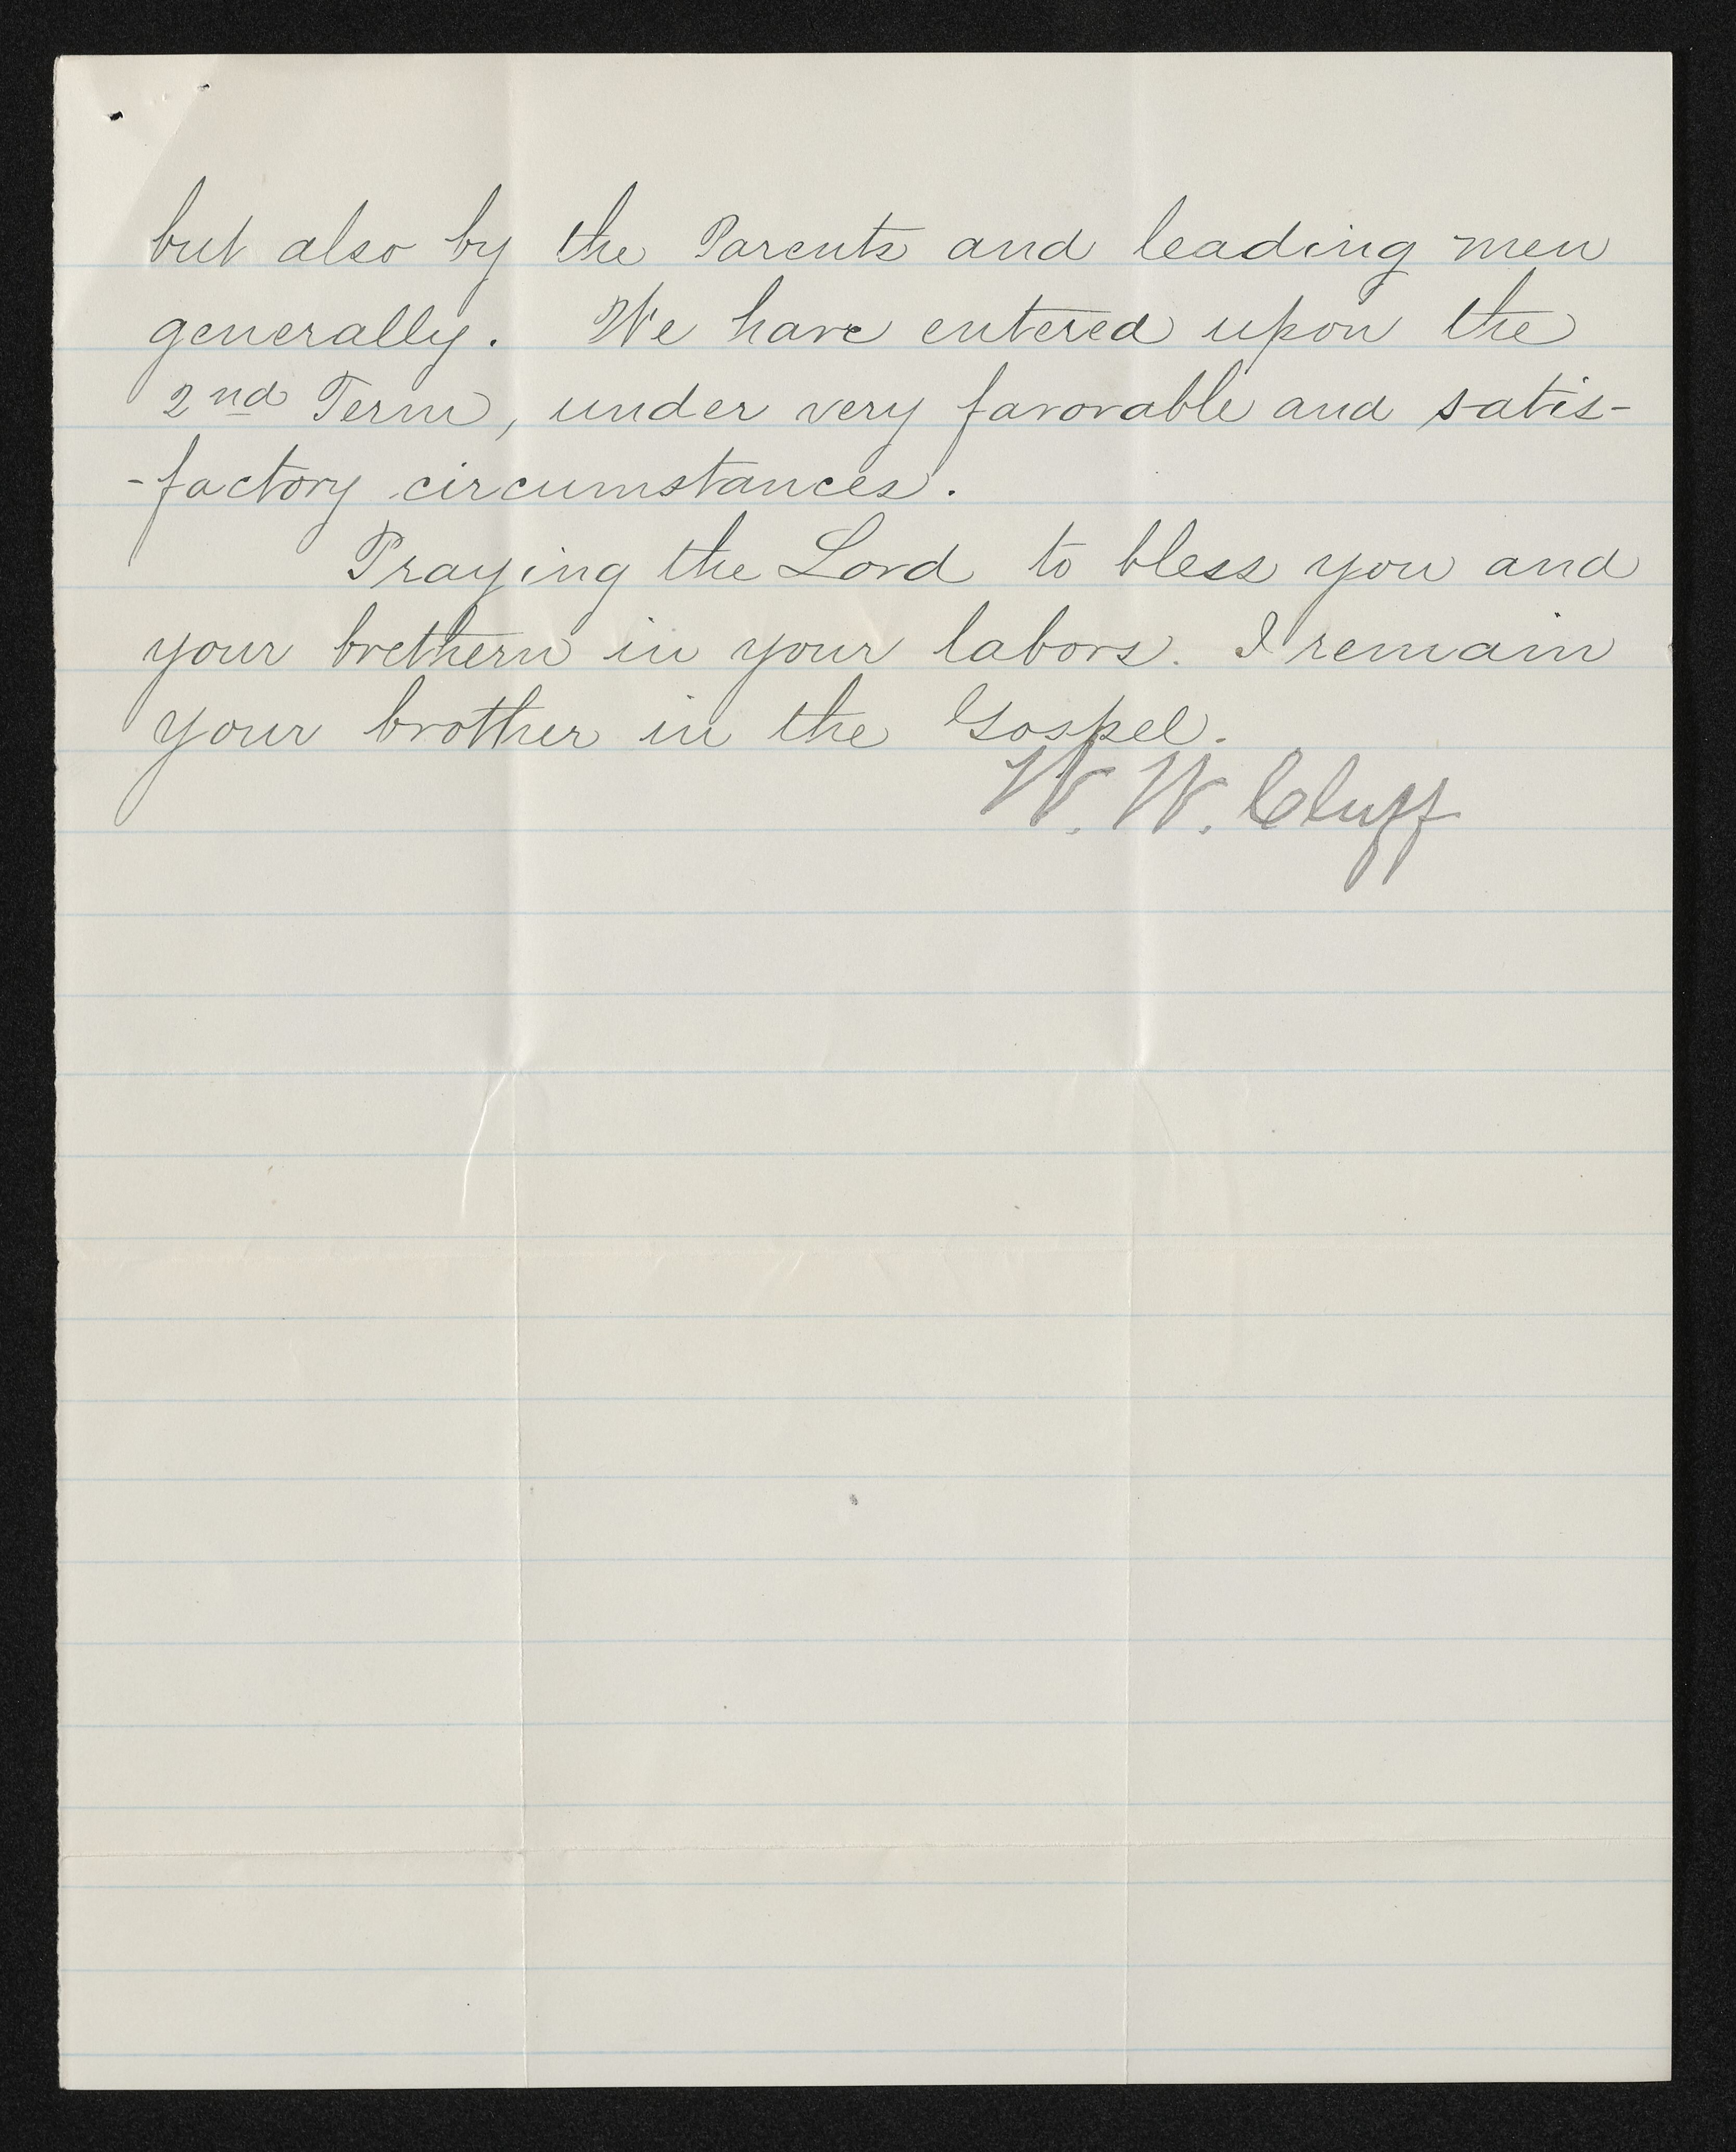 but also by the Parents and leading men
generally. We have entered upon the
2nd Term, under very favorable and satis-
-factory circumstances.
Praying the Lord to bless you and
your brethern in your labors. I remain
your brother in the Gospel.
W. W. Cluff